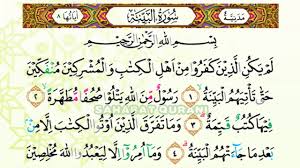 مَدَنِيَّةٌ سُورَةُ الْبَيِّنَةِ اٰيَاتُهَا ٨
بِسْمِ اللهِ الرَّحْمٰنِ الرَّحِيْمِ
لَمْ يَكُنِ الَّذِيْنَ كَفَرُوْا مِنْ اَهْلِ الْكِتٰبِ وَالْمُشْرِكِيْنَ مُنْفَكِّيْنَ
حَتّٰى تَأْتِيَهُمُ الْبَيِّنَةُ ١ رَسُوْلٌ مِّنَ اللهِ يَتْلُوْا صُحُفًا مُّطَهَّرَةً ٢
فِيْهَا كُتُبٌ قَيِّمَةٌ ٣ وَمَا تَفَرَّقَ الَّذِيْنَ اُوْتُوا الْكِتٰبَ اِلَّا مِنْۢ
بَعْدِ مَا جَآءَتْهُمُ الْبَيِّنَةُ ٤ وَمَآ اُمِرُوْٓا اِلَّا لِيَعْبُدُوا اللهَ مُخْلِصِيْنَ